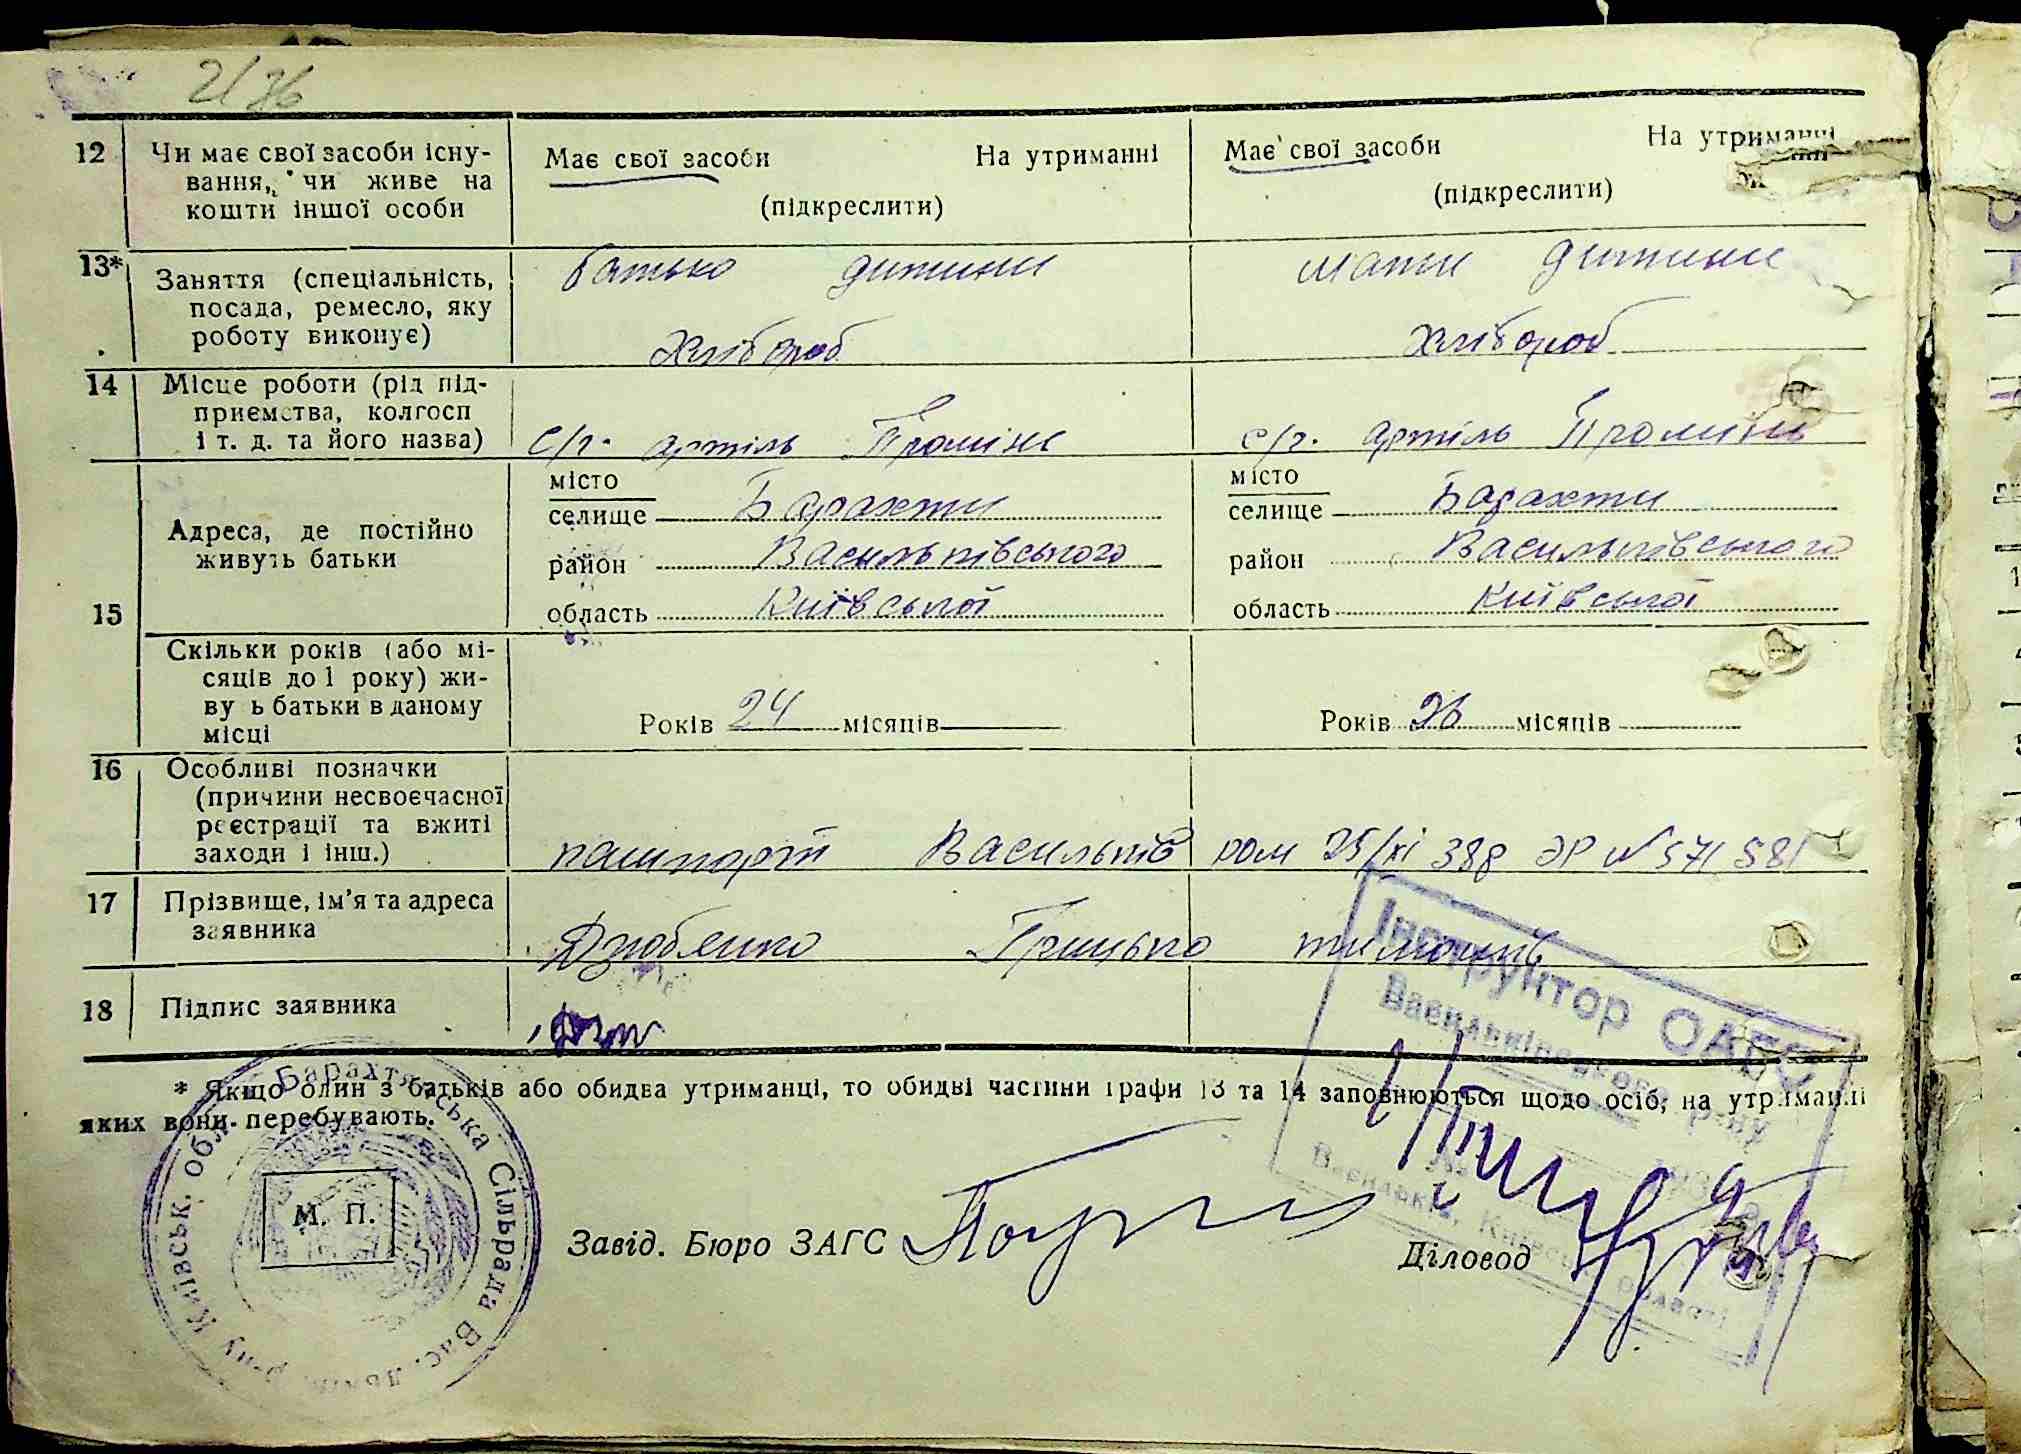 2/36
12 Чи має свої засоби існу-
вання, чи живе на
кошти іншої особи
Має свої засоби На утриманні
(підкреслити)
Має свої засоби На утриманні
(підкреслити)
13* Заняття (спеціальність,
посада, ремесло, яку
роботу виконує)
батько дитини
хлібороб
мати дитини
хлібороб
14 Місце роботи (рід під-
приємства, колгосп
і т. д. та його назва)
с/г. артіль Промінь
с/г. артіль Промінь
15 Адреса, де постійно
живуть батьки
місто
селище Барахти
район Васильківського
область Київської
місто
селище Барахти
район Васильківського
область Київської
Скільки років (або мі-
сяців до 1 року) жи-
ву ь батьки в даному
місці
Років 24 місяців
Років 26 місяців
16 Особливі позначки
(причини несвоєчасної
реєстрації та вжиті
заходи і інш.)
пашпорт Васильків ром 25/XI 38р ЭР № 571581
17 Прізвище, ім'я та адреса
заявника
Дзюбенко Грицько
18 Підпис заявника
* Якщо один з батьків або обидва утриманці, то обидві частини графи 13 та 14 заповнюються щодо осіб, на утриманні
яких вони перебувають.
Барахтянська Сільрада Васильків р-ну Київськ. обл.
М. П.
Завід. Бюро ЗАГС
Діловод
Інструктор ОАГС
Васильківського р-ну
Васильків, Київської області